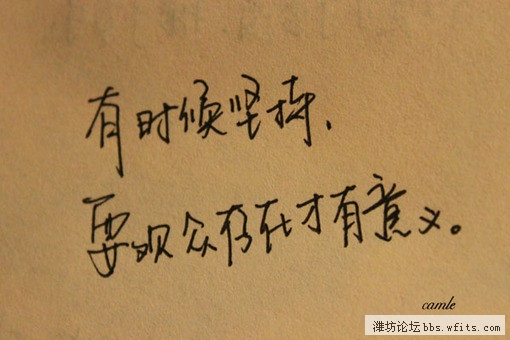 有时候坚持，
要观众存在才有意义。
camle
潍坊论坛 bbs.wfits.com